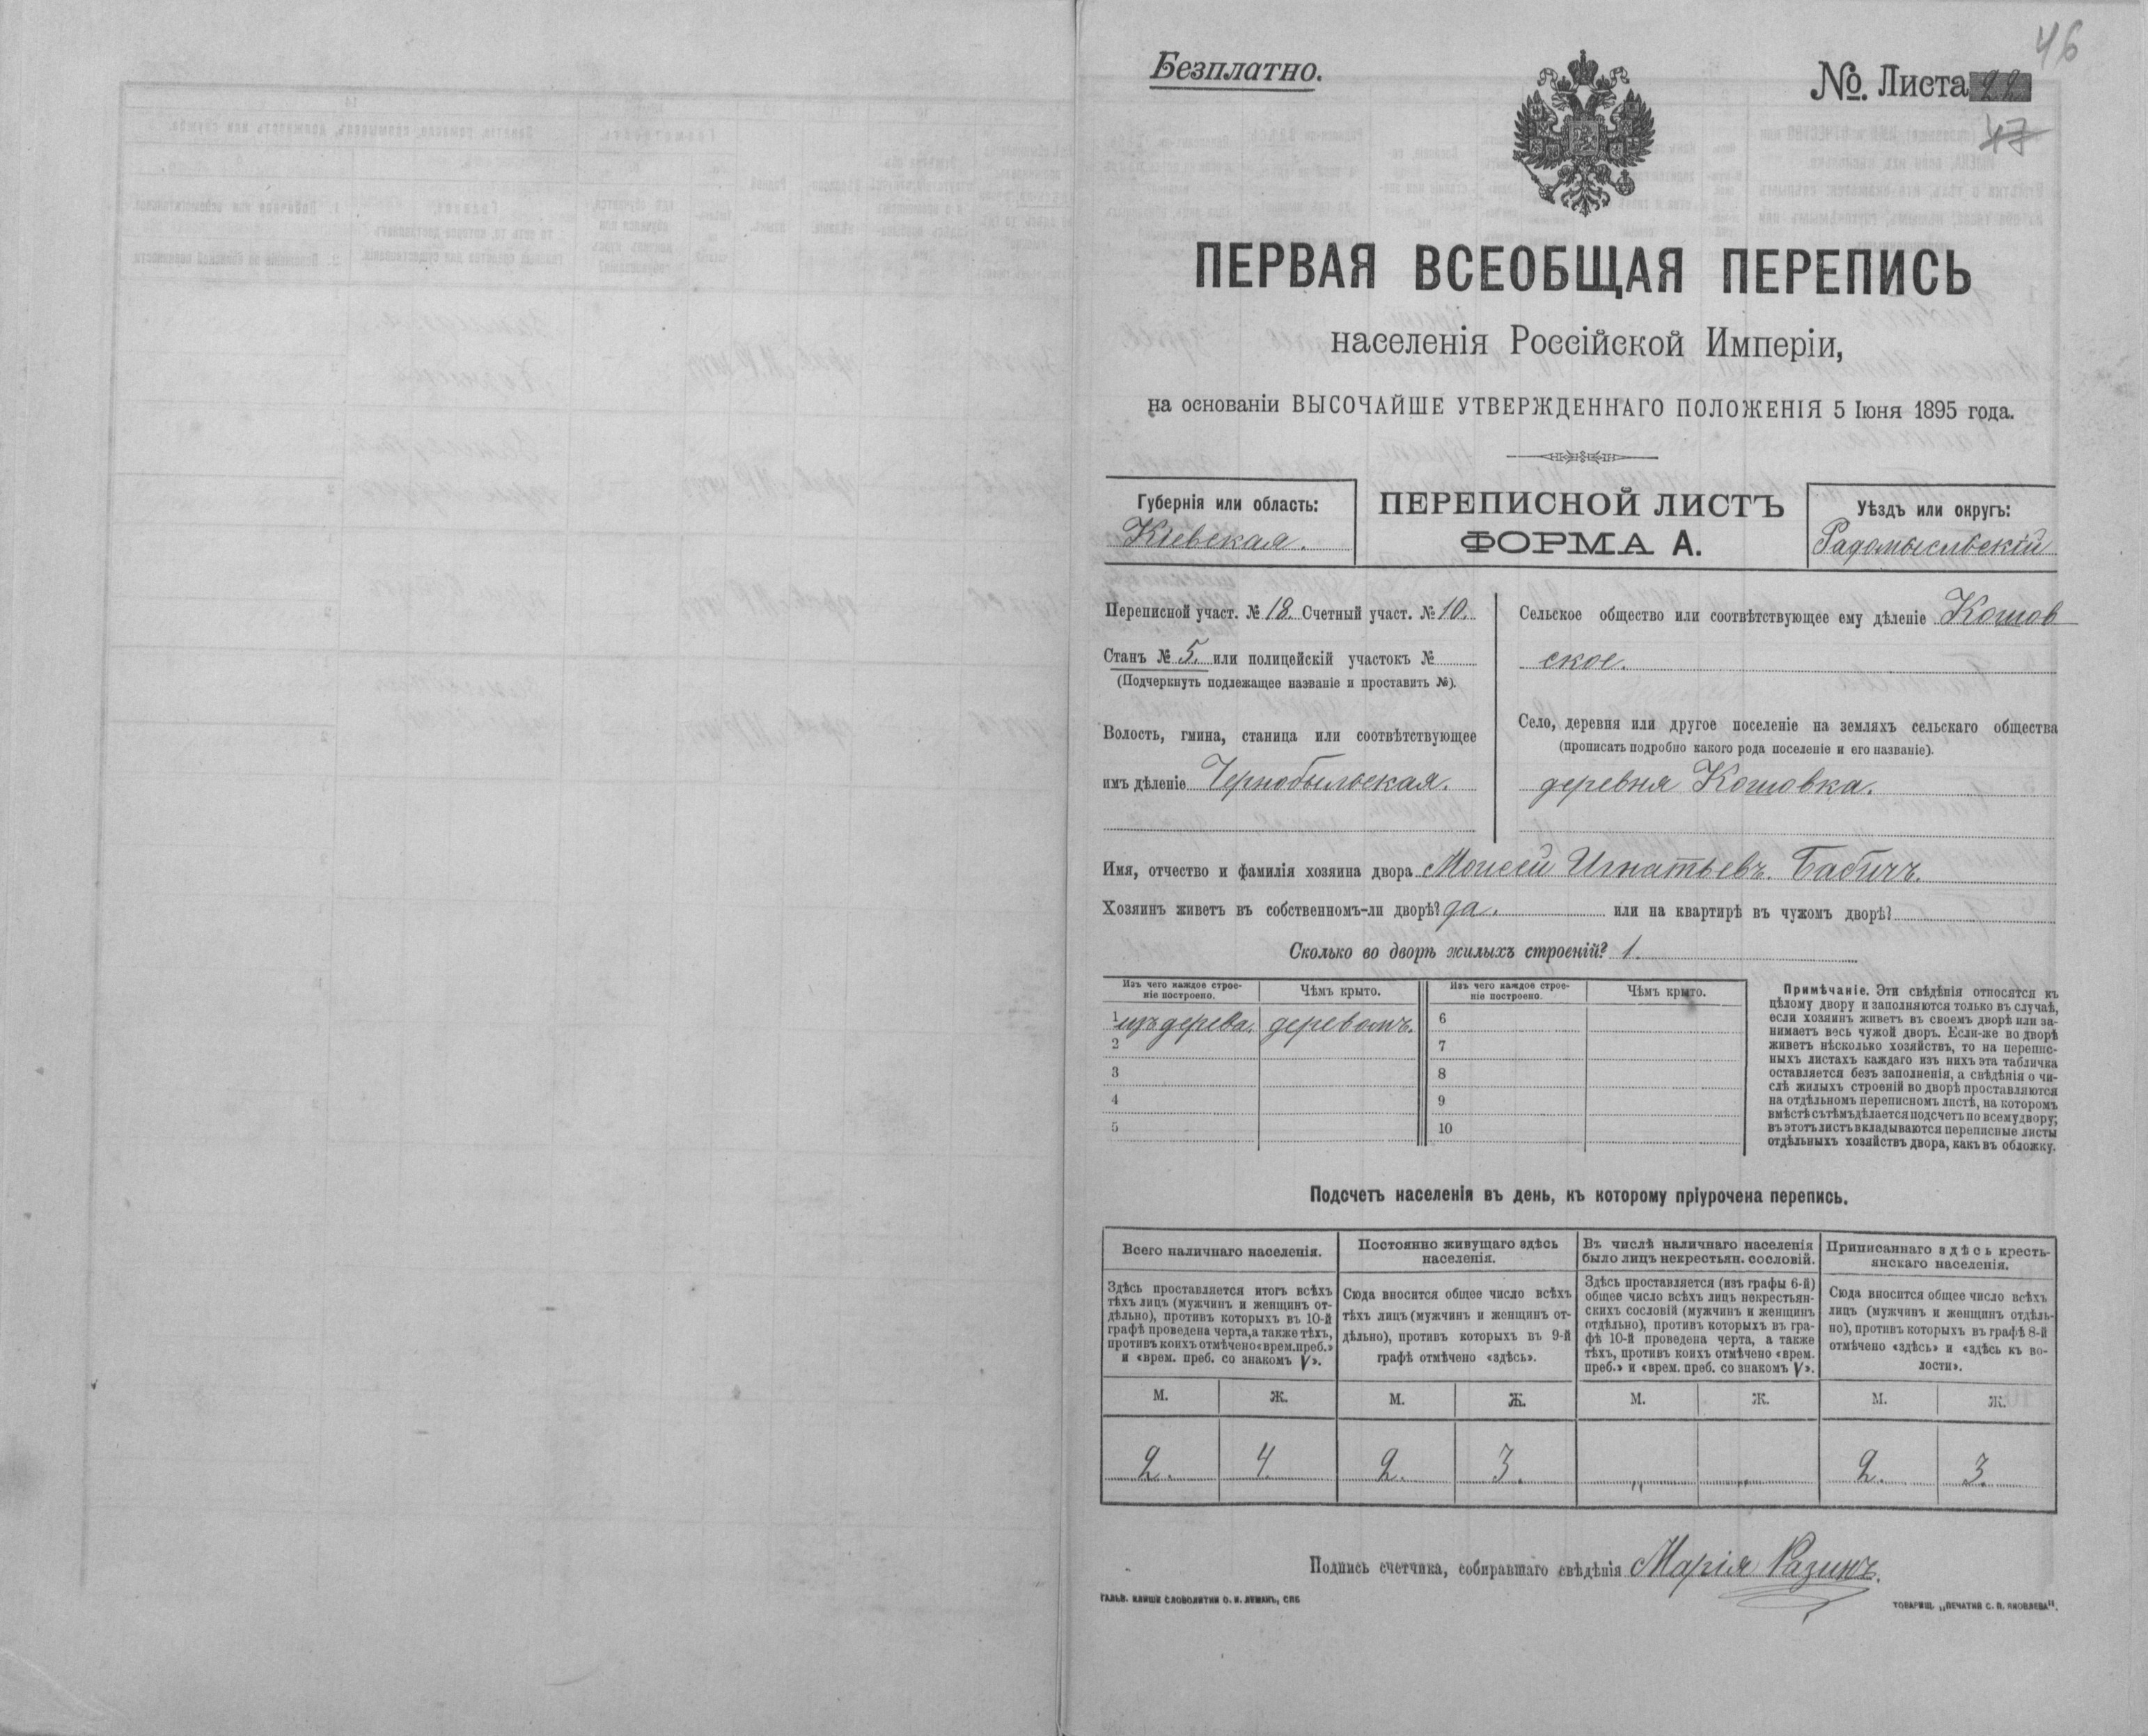 46
Безплатно.
№. Листа 22
47
ПЕРВАЯ ВСЕОБЩАЯ ПЕРЕПИСЬ
населенія Россійской Имперіи,
на основаніи ВЫСОЧАЙШЕ УТВЕРЖДЕННАГО ПОЛОЖЕНІЯ 5 Іюня 1895 года.
Губернія или область:
Кіевская.
ПЕРЕПИСНОЙ ЛИСТЪ
ФОРМА А.
Уѣздъ или округъ:
Радомысльскій
Переписной участ. № 18. Счетный участ. № 10.
Станъ № 5. или полицейскій участокъ №
(Подчеркнуть подлежащее названіе и проставить №).
Волость, гмина, станица или соотвѣтствующее
имъ дѣленіе Чернобыльская.
Сельское общество или соотвѣтствующее ему дѣленіе Кошов
ское.
Село, деревня или другое поселеніе на земляхъ сельскаго общества
(прописать подробно какого рода поселеніе и его названіе).
деревня Кошовка.
Имя, отчество и фамилія хозяина двора Моисей Игнатьевъ. Бабичъ.
Хозяинъ живетъ въ собственномъ-ли дворѣ? да. или на квартирѣ въ чужомъ дворѣ?
Сколько во дворѣ жилыхъ строеній? 1.
Изъ чего каждое строе-
ніе построено.
Чѣмъ крыто.
Изъ чего каждое строе-
ніе построено.
Чѣмъ крыто.
1 изъ дерева. деревомъ. 6
2 7
3 8
4 9
5 10
Примѣчаніе. Эти свѣдѣнія относятся къ
цѣлому двору и заполняются только въ случаѣ,
если хозяинъ живетъ въ своемъ дворѣ или за-
нимаетъ весь чужой дворъ. Если-же во дворѣ
живетъ нѣсколько хозяйствъ, то на перепис-
ныхъ листахъ каждаго изъ нихъ эта табличка
оставляется безъ заполненія, а свѣдѣнія о чи-
слѣ жилыхъ строеній во дворѣ проставляются
на отдѣльномъ переписномъ листѣ, на которомъ
вмѣстѣ съ тѣмъ дѣлается подсчетъ по всему двору;
въ этотъ листъ вкладываются переписные листы
отдѣльныхъ хозяйствъ двора, какъ въ обложку.
Подсчетъ населенія въ день, къ которому пріурочена перепись.
Всего наличнаго населенія.
Здѣсь проставляется итогъ всѣхъ
тѣхъ лицъ (мужчинъ и женщинъ от-
дѣльно), противъ которыхъ въ 10-й
графѣ проведена черта, а также тѣхъ,
противъ коихъ отмѣчено «врем. преб.»
и «врем. преб. со знакомъ V».
Постоянно живущаго здѣсь
населенія.
Сюда вносится общее число всѣхъ
тѣхъ лицъ (мужчинъ и женщинъ от-
дѣльно), противъ которыхъ въ 9-й
графѣ отмѣчено «здѣсь».
Въ числѣ наличнаго населенія
было лицъ некрестьян. сословій.
Здѣсь проставляется (изъ графы 6-й)
общее число всѣхъ лицъ некрестьян-
скихъ сословій (мужчинъ и женщинъ
отдѣльно), противъ которыхъ въ гра-
фѣ 10-й проведена черта, а также
тѣхъ, противъ коихъ отмѣчено «врем.
преб.» и «врем. преб. со знакомъ V».
Приписаннаго здѣсь кресть-
янскаго населенія.
Сюда вносится общее число всѣхъ
лицъ (мужчинъ и женщинъ отдѣль-
но), противъ которыхъ въ графѣ 8-й
отмѣчено «здѣсь» и «здѣсь къ во-
лости».
М. Ж. М. Ж. М. Ж. М. Ж.
2. 4 2. 3. „ „ 2. 3.
Подпись счетчика, собиравшаго свѣдѣнія Марія Разинъ.
ГАЛЬВ. КЛИШЕ СЛОВОЛИТНИ О. И. ЛЕМАНЪ, СПБ
ТОВАРИЩ. „ПЕЧАТНЯ С. П. ЯКОВЛЕВА".